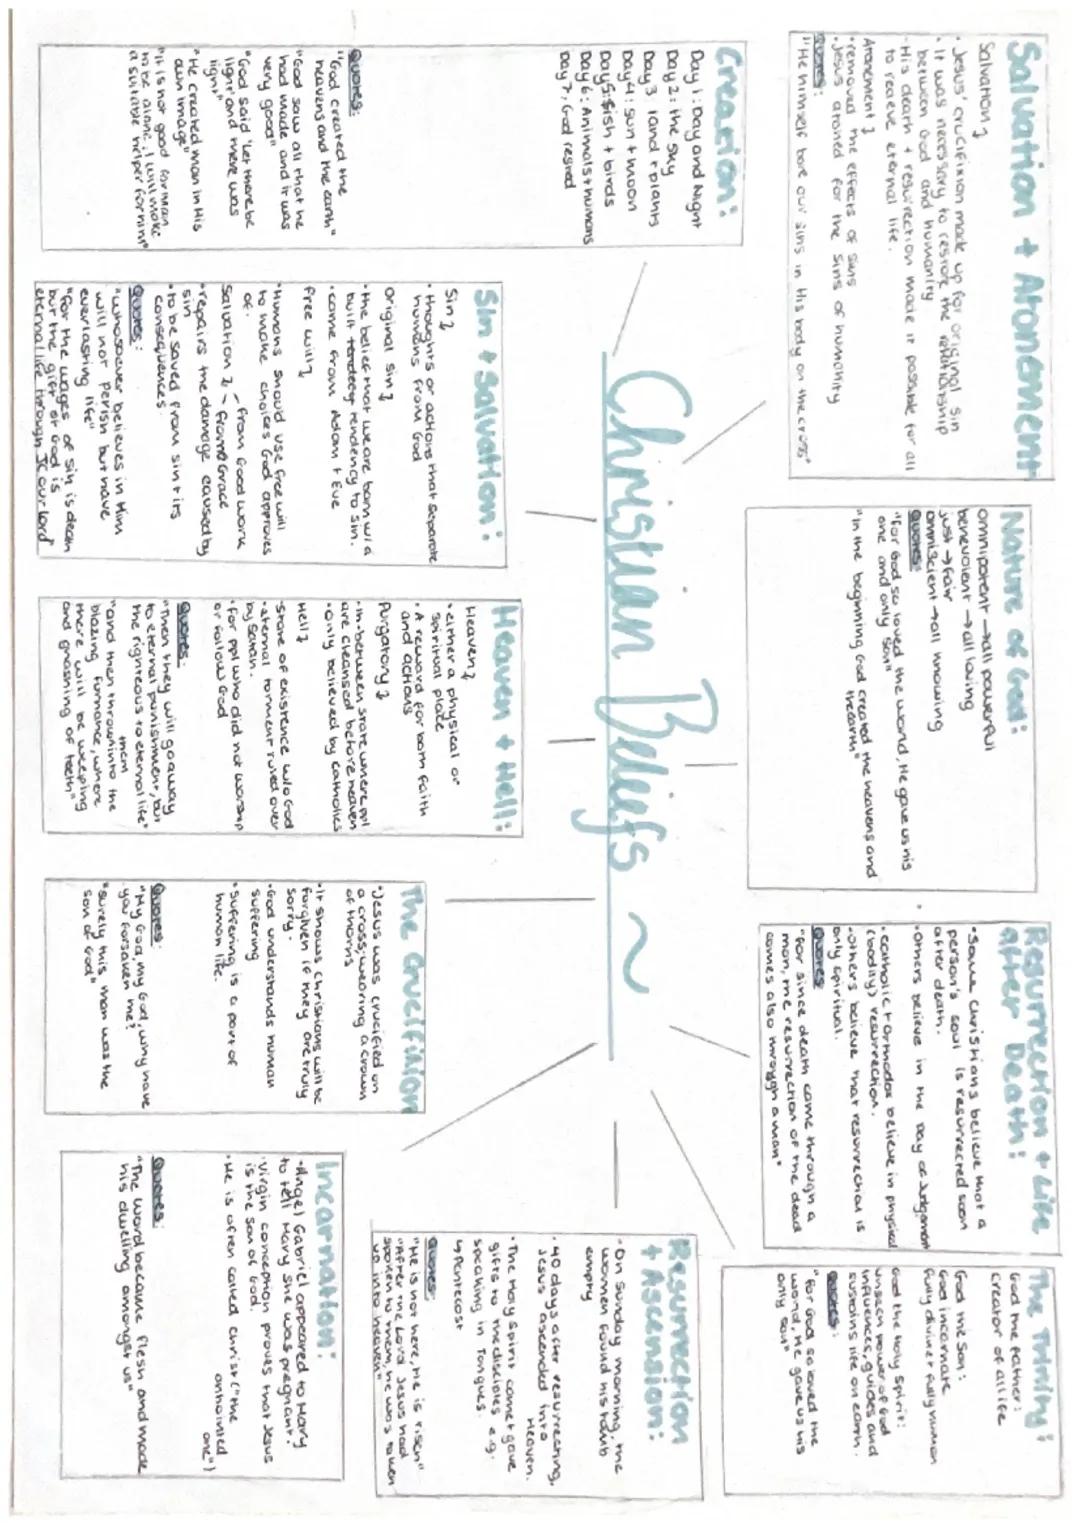 Christian Beliefs ~
Salvation + Atonement
Salvation
• Jesus' crucifixion made up for original sin
• It was necessary to restore the relationship
between God and humanity
• His death + resurrection made it possible for all
to receive eternal life.
Atonement
• removed the effects of sins
• Jesus atoned for the sins of humanity
Quotes:
"He himself bore our sins in His body on the cross"
Nature of God:
omnipotent → all powerful
benevolent → all loving
just → fair
omniscient → all knowing
Quotes:
"For God so loved the world, He gave us his
one and only son"
"In the beginning God created the heavens and
the earth"
Resurrection + Life
after Death:
• Some Christians believe that a
person's soul is resurrected soon
after death.
• Others believe in the Day of Judgement
• Catholic + Orthodox believe in physical
(bodily) resurrection.
• Others believe that resurrection is
only spiritual.
Quotes
"For since death came through a
man, the resurrection of the dead
comes also through a man"
The Trinity:
God the Father:
creator of all life
God the Son:
God incarnate
fully divine + fully human
God the Holy Spirit:
unseen power of God
influences, guides and
sustains life on earth.
Quotes:
"For God so loved the
world, He gave us his
only son"
Creation:
Day 1: Day and Night
Day 2: the sky
Day 3: land + plants
Day 4: sun + moon
Day 5: fish + birds
Day 6: Animals + humans
Day 7: God rested
Quotes:
"God created the
heavens and the earth"
"God saw all that he
had made and it was
very good"
"God said 'Let there be
light' and there was
light"
"He created man in His
own image"
"It is not good for man
to be alone, I will make
a suitable helper for him"
Sin + Salvation:
Sin
• thoughts or actions that separate
humans from God
Original sin
• the belief that we are born w/ a
built tendency to sin.
• come from Adam + Eve
free will
• Humans should use free will
to make choices God approves
of.
Salvation - from Good work
- from Grace
• repairs the damage caused by
sin
• to be saved from sin + its
consequences
Quotes:
"Whosoever believes in Him
will not perish but have
everlasting life"
"For the wages of sin is death
but the gift of God is
eternal life through JC our lord"
Heaven + Hell:
Heaven
• either a physical or
spiritual place
• A reward for both faith
and actions
Purgatory
• In-between state where ppl
are cleansed before heaven
• only believed by catholics
Hell
• State of existence w/o God
• eternal torment ruled over
by Satan.
• For ppl who did not worship
or follow God
Quotes:
"Then they will go away
to eternal punishment, but
the righteous to eternal life"
"and then thrown them into the
blazing furnance, where
there will be weeping
and gnashing of teeth"
The Crucifixion
• Jesus was crucified on
a cross; wearing a crown
of thorns
• It shows Christians will be
forgiven if they are truly
sorry.
• God understands human
suffering
• Suffering is a part of
human life.
Quotes:
"My God, my God, why have
you forsaken me?
"surely this man was the
son of God"
Resurrection
+ Ascension:
• On Sunday morning, the
women found his tomb
empty
• 40 days after resurrecting,
Jesus ascended into
Heaven.
• The Holy Spirit came + gave
gifts to the disciples e.g.
speaking in Tongues.
↳ Pentecost
Quotes:
"He is not here, He is risen"
"After the Lord Jesus had
spoken to them, he was taken
up into heaven"
Incarnation:
• Angel Gabriel appeared to Mary
to tell Mary she was pregnant.
• Virgin conception proves that Jesus
is the Son of God.
• He is often called Christ ("the
one")
Quotes:
"The word became flesh and made
his dwelling amongst us"